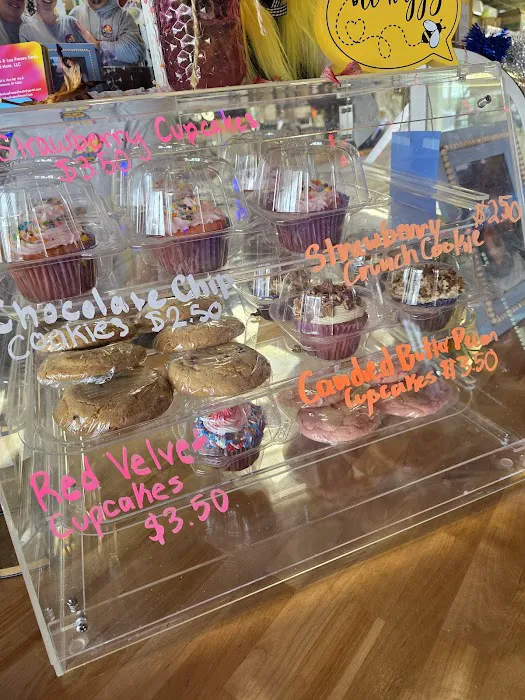 Strawberry Cupcakes
$3.50
Strawberry $2.50
Crunch Cookie
Chocolate Chip
Cookies $2.50
Candied Butter Pecan
Cupcakes $3.50
Red Velvet
Cupcakes
$3.50